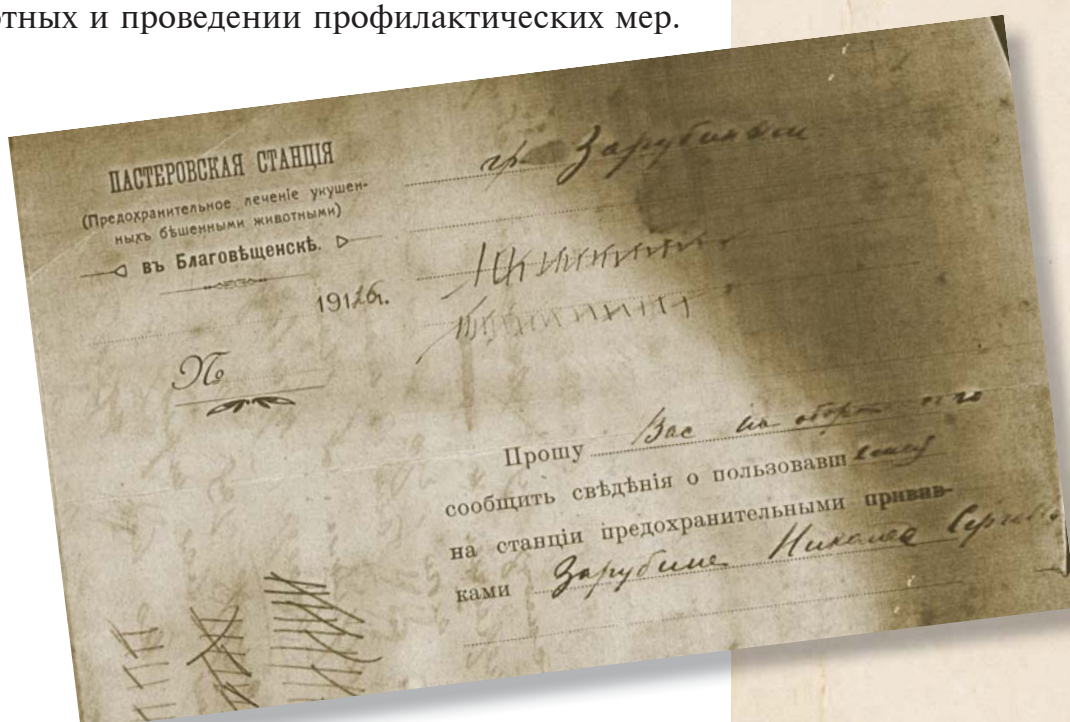 отных и проведении профилактических мер.
ПАСТЕРОВСКАЯ СТАНЦІЯ
(Предохранительное леченіе укушен-
ныхъ бѣшенными животными)
въ Благовѣщенскѣ.
191
гр. Зарубиным
№
Прошу Вас на
сообщить свѣдѣнія о пользовавш
на станціи предохранительными привив-
ками Зарубине Николае